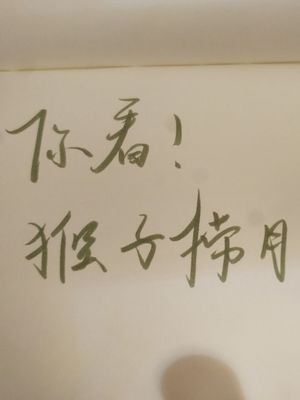 你看！
猴子捞月